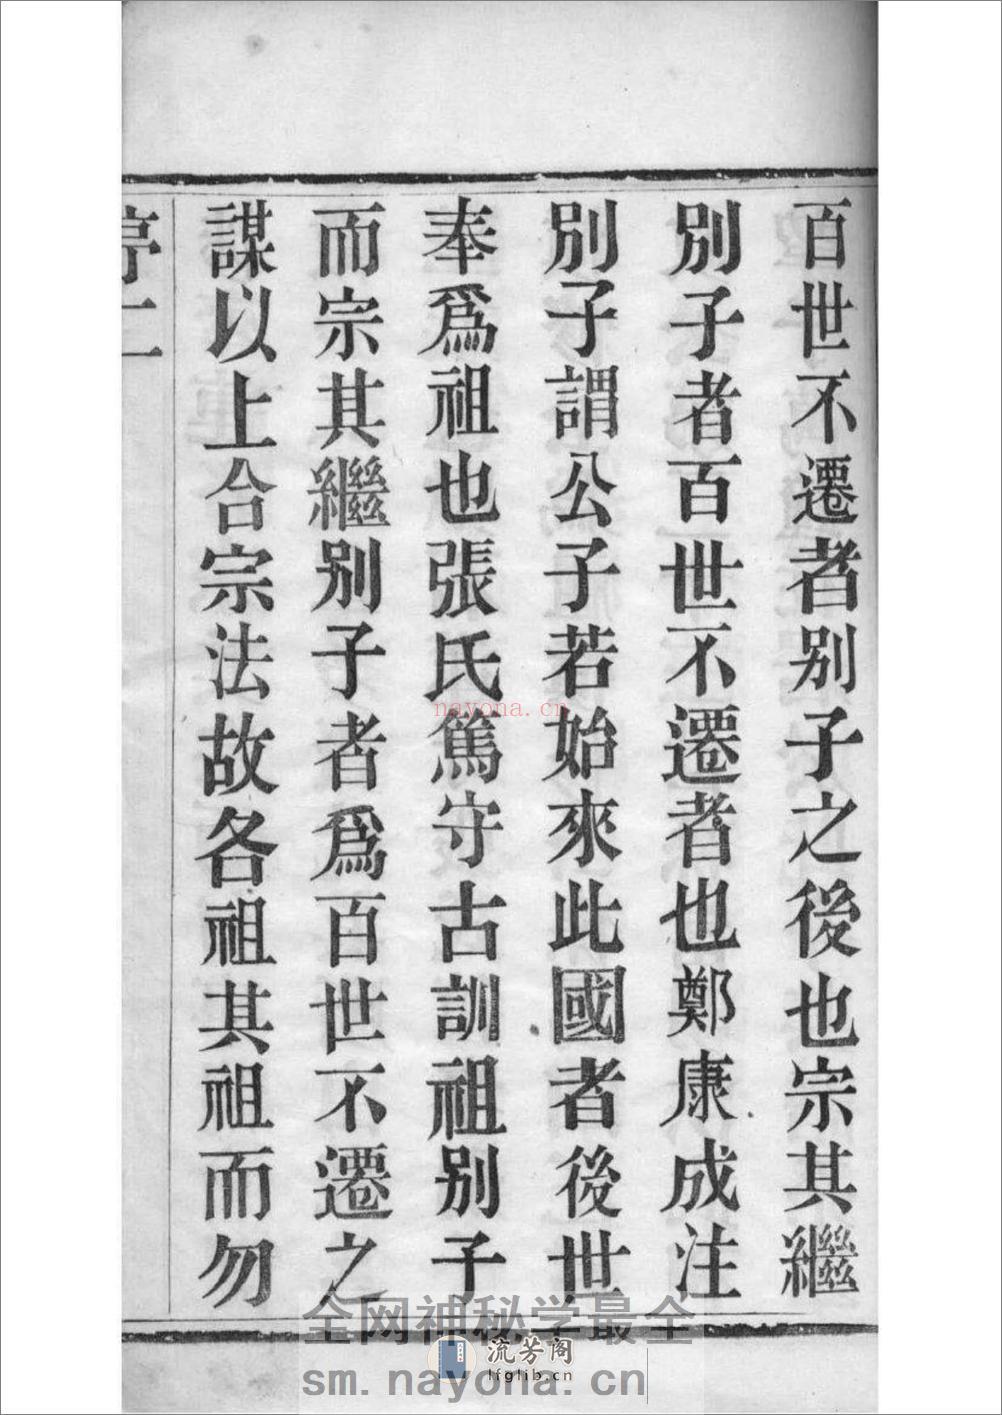 百世不遷者別子之後也宗其繼
別子者百世不遷者也鄭康成注
別子謂公子若始來此國者後世
奉爲祖也張氏篤守古訓祖別子
而宗其繼別子者爲百世不遷之
謀以上合宗法故各祖其祖而勿
序二
nayona.cn
全网神秘学最全
流芳阁
lfglib.cn
sm.nayona.cn